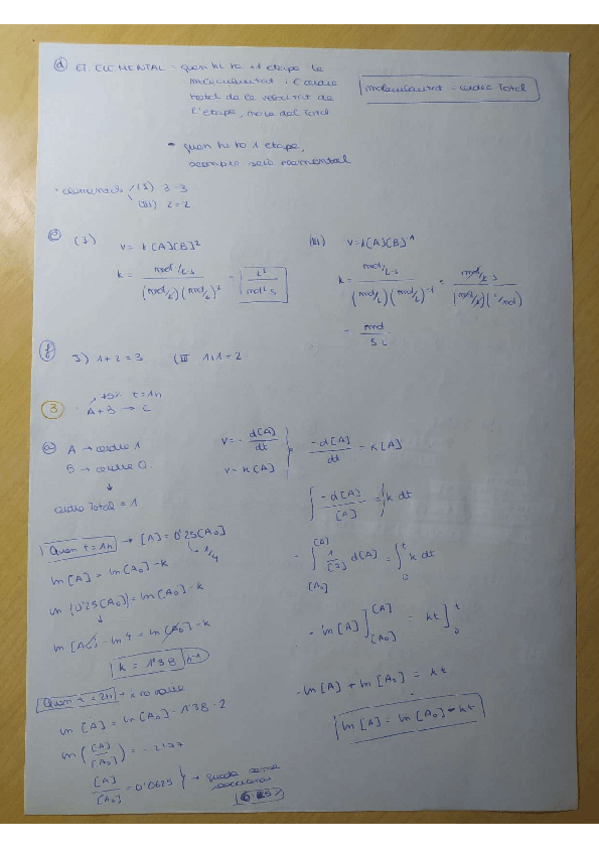 d ET. ELEMENTAL = quan hi ha +1 etapa la
molecularitat i l'ordre
total de la velocitat de
l'etapa, no la del total
molecularitat = ordre total
- quan hi ha 1 etapa,
sempre serà elemental
(I) 3=3
(III) 2=2
e (I) v = k[A][B]²
k = mol/L·s / (mol/L)(mol/L)² = L²/mol²s
(III) v = k[A][B]⁻¹
k = mol/L·s / (mol/L)(mol/L)⁻¹
= mol / s L
f I) 1+2=3 (III 1+1=2
3 75% t=1h
A+B → C
a A → ordre 1
B → ordre 0
↓
ordre total = 1
v = - d[A]/dt
v = k[A]
-d[A]/dt = k[A]
∫ -d[A]/[A] = ∫ k dt
- ∫ [A₀] [A] 1/[A] d[A] = ∫ 0 t k dt
- ln[A] ] [A₀] [A] = kt ] 0 t
-ln[A] + ln[A₀] = kt
ln[A] = ln[A₀] - kt
Quan t=1h → [A] = 0'25[A₀]
1/4
ln[A] = ln[A₀] - k
ln(0'25[A₀]) = ln[A₀] - k
↓
ln[A₀] - ln4 = ln[A₀] - k
k = 1'38 h⁻¹
Quan t=2h → k no varia
ln[A] = ln[A₀] - 1'38·2
ln([A]/[A₀]) = -2'77
[A]/[A₀] = 0'0625 → queda sense